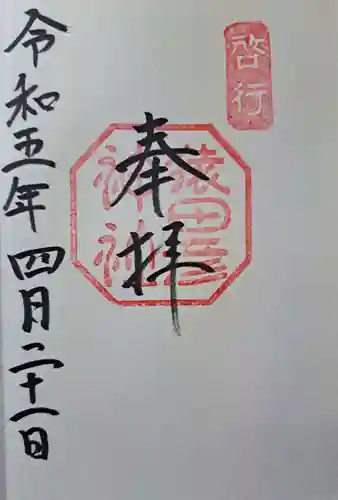 啓行
奉拝
猿田彦
神社
令和五年四月二十一日